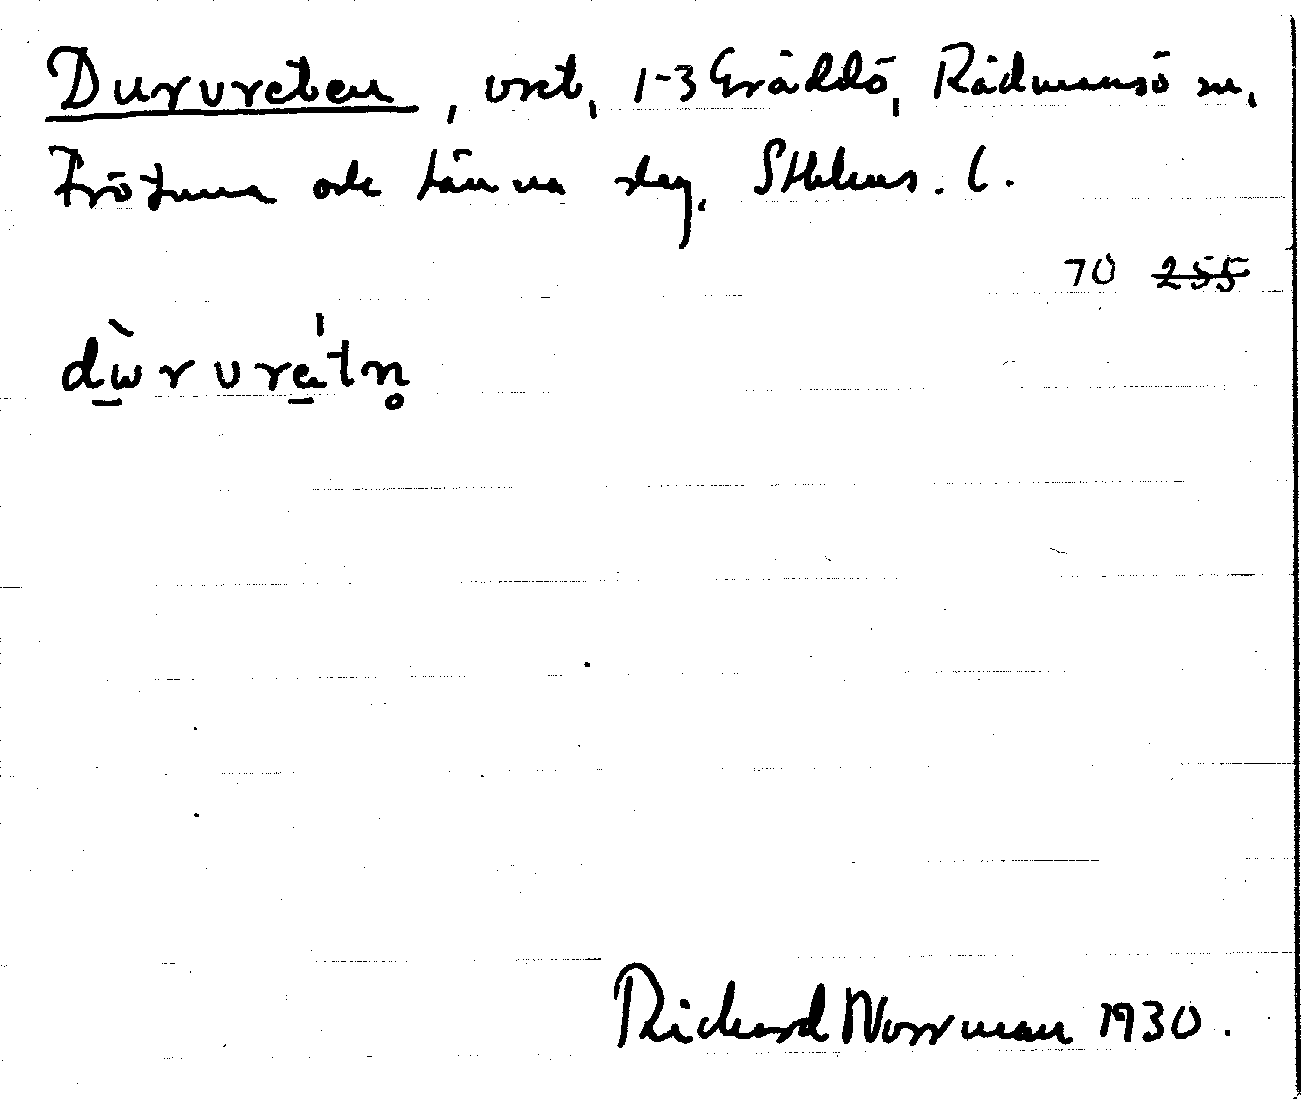 Durvreten, vret, 1-3 Gräddö, Rådmansö sn,
Frötuna och Länna skg. Sthlms. l.
70 255
dùrvrétn̥
Richard Norrman 1930.